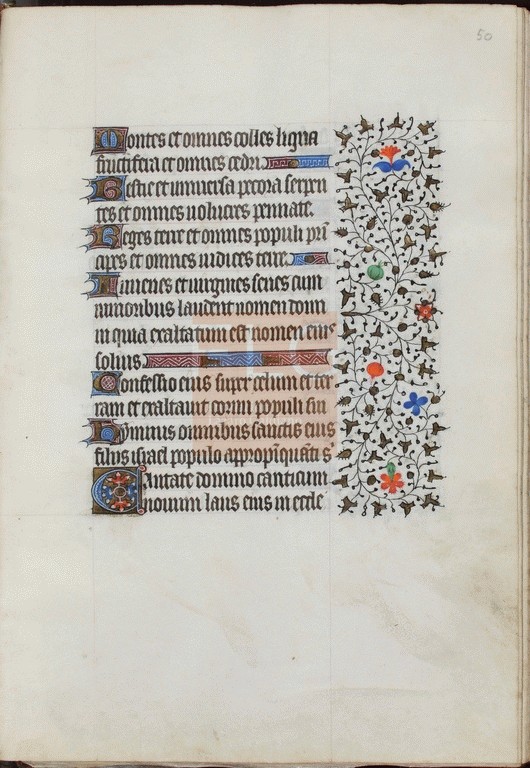 50
Montes et omnes colles ligna
fructifera et omnes cedri.
Bestie et universa pecora serpen
tes et omnes uolucres pennate.
Reges terre et omnes populi pri
cipes et omnes iudices terre.
Iuuenes et uirgines senes cum
iunioribus laudent nomen domi
ni quia exaltatum est nomen eius
solius.
Confessio eius super celum et ter
ram et exaltauit cornu populi sui
Hymnus omnibus sanctis eius
filiis israel populo appropinquanti s
Cantate domino canticum
nouum laus eius in eccle